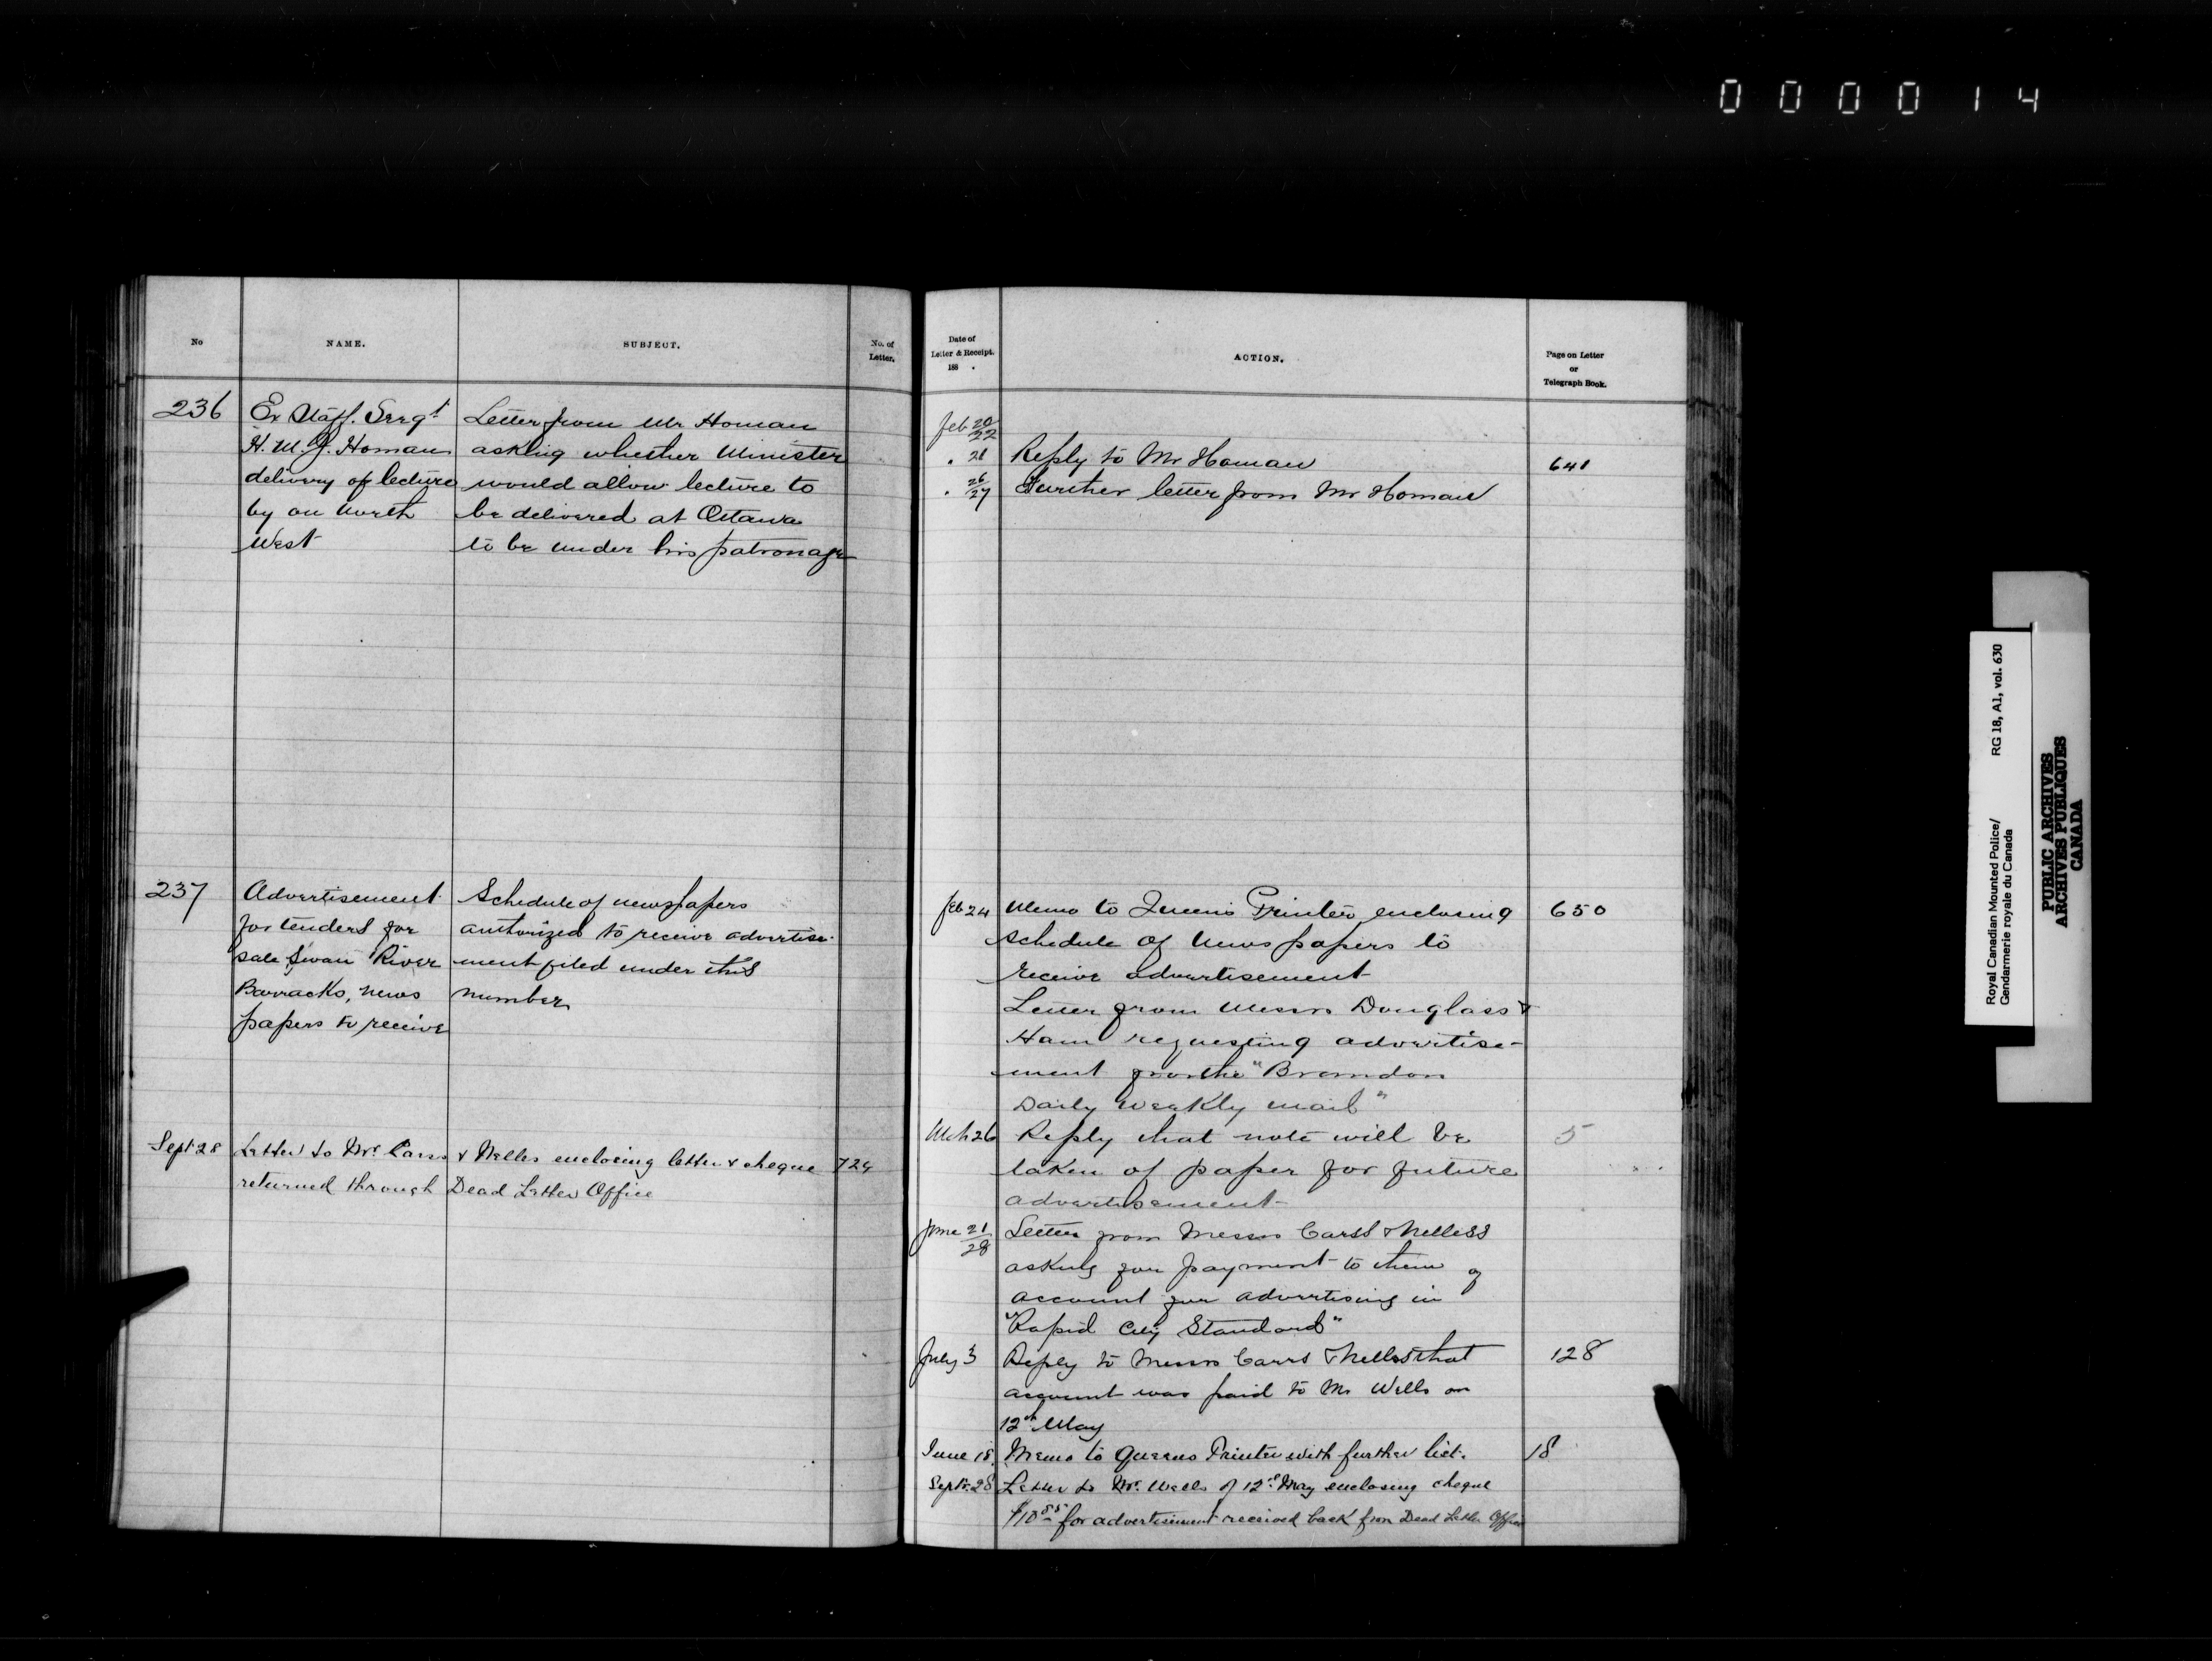 000014
No
NAME.
SUBJECT.
No. of
Letter.
236
Ex Staff. Sergt
H. M. J. Homan
delivery of lecture
by on North
West
Letter from Mr Homan
asking whether Minister
would allow lecture to
be delivered at Ottawa
to be under his patronage
237
Advertisement
for tenders for
sale Swan River
Barracks, news
papers to receive
Schedule of newspapers
authorized to receive advertise-
ment filed under this
number
Sept 28 Letter to Mr. Carss & Nelles enclosing letter & cheque 724
returned through Dead Letter Office
Date of
Letter & Receipt.
188 .
ACTION.
Page on Letter
or
Telegraph Book.
Feb 20
22
" 21 Reply to Mr Homan 641
" 26
27 Further letter from Mr Homan
Feb 24 Memo to Queens Printer enclosing 650
schedule of news papers to
receive advertisement
Letter from Messrs Douglass &
Ham requesting advertise-
ment for the "Brandon
Daily Weekly Mail"
Mch 26 Reply that note will be 5
taken of paper for future
advertisement
June 21
28 Letter from Messrs Carss & Nelless
asking for payment to them of
account for advertising in
"Rapid City Standard"
July 3 Reply to Messrs Carss & Nelles that 128
account was paid to Mr Wells on
12th May
June 18 Memo to Queens Printer with further list. 18
Septr. 28 Letter to Mr. Wells of 12th May enclosing cheque
$10.85 for advertisement received back from Dead Letter Office
Royal Canadian Mounted Police/
Gendarmerie royale du Canada
RG 18, A1, vol. 630
PUBLIC ARCHIVES
ARCHIVES PUBLIQUES
CANADA